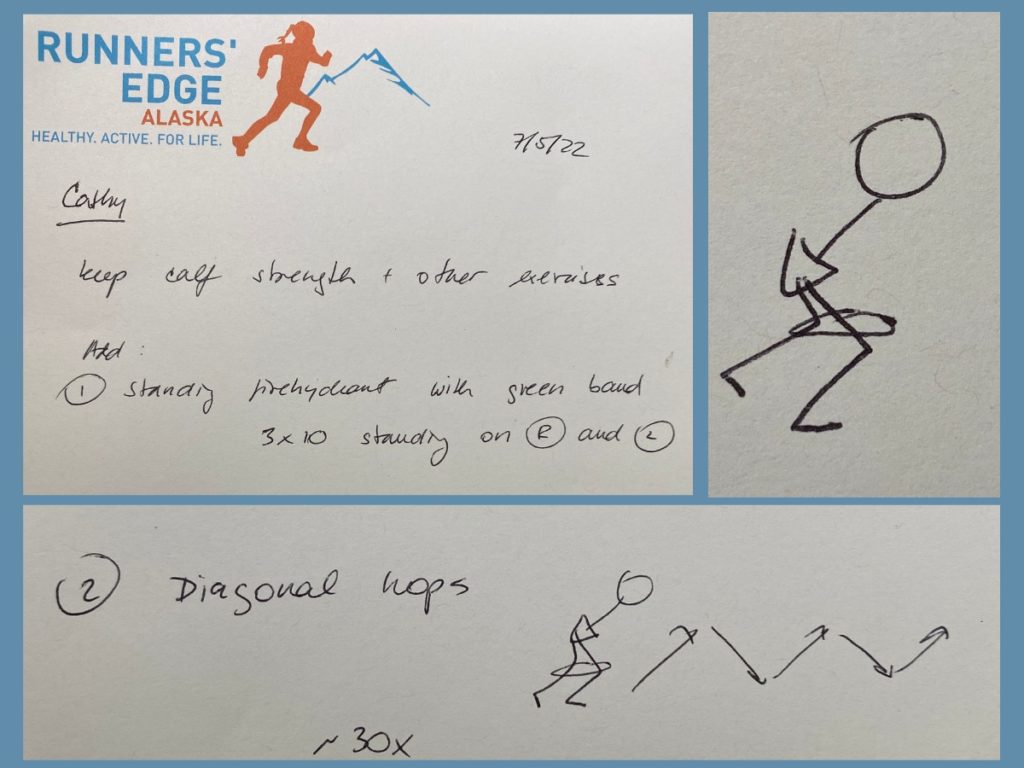 RUNNERS'
EDGE
ALASKA
HEALTHY. ACTIVE. FOR LIFE.
7/5/22
Cathy
keep calf strength + other exercises
Add :
① standing firehydrant with green band
3x10 standing on Ⓡ and Ⓛ
② Diagonal hops
~ 30x